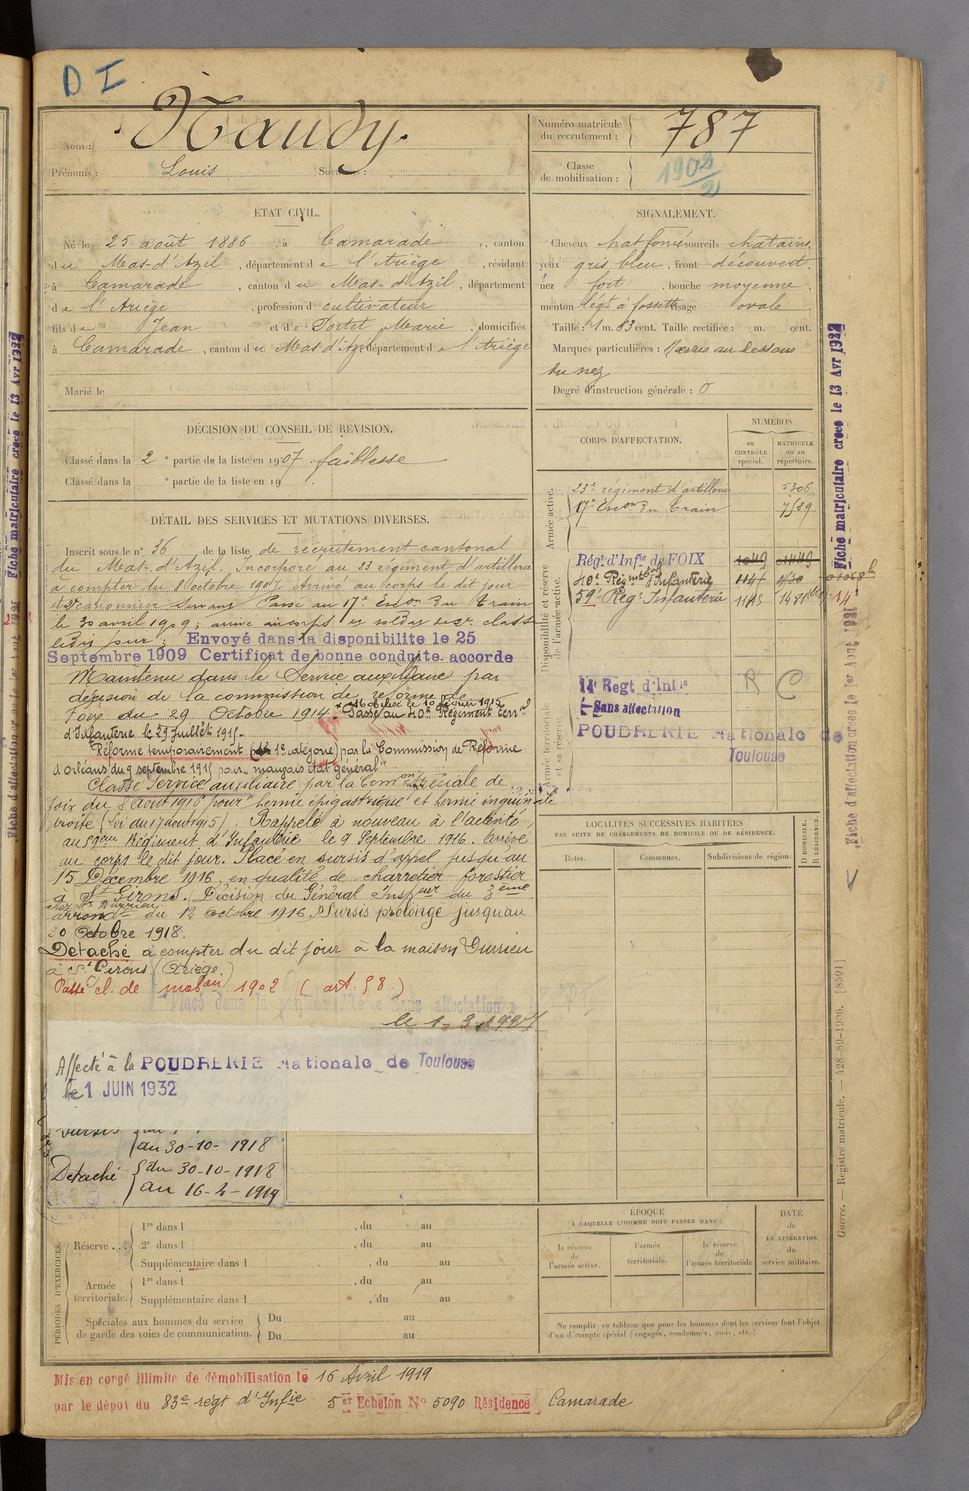 D I
Nom : Naudy.
Prénoms : Louis Surnom :
Numéro matricule du recrutement : 787
Classe de mobilisation : 1902
ÉTAT CIVIL.
Né le 25 août 1886, à Camarade, canton
du Mas-d'Azil, département de l'Ariège, résidant
à Camarade, canton du Mas-d'Azil, département
de l'Ariège, profession de cultivateur
fils de Jean et de Portet Marie, domiciliés
à Camarade, canton du Mas d'Azil, département de l'Ariège
Marié le
SIGNALEMENT.
Cheveux chat foncé sourcils châtains
yeux gris bleu, front découvert.
nez fort, bouche moyenne.
menton légt à fossette visage ovale
Taille : 1 m. 63 cent. Taille rectifiée : m. cent.
Marques particulières : Nævus au dessous
du nez
Degré d'instruction générale : 0
DÉCISION DU CONSEIL DE RÉVISION.
Classé dans la 2e partie de la liste en 1907. faiblesse
Classé dans la e partie de la liste en 19
DÉTAIL DES SERVICES ET MUTATIONS DIVERSES.
Inscrit sous le n° 36 de la liste de recrutement cantonal
du Mas-d'Azil. Incorporé au 23 régiment d'artillerie
à compter du 8 octobre 1907. Arrivé au corps le dit jour
et 2e canonnier servant. Passé au 17e Escon du Train
le 30 avril 1909; arrivé au corps et soldat de 2e classe
le dit jour; Envoyé dans la disponibilite le 25
Septembre 1909 Certificat de bonne conduite. accorde
Maintenu dans le Service auxiliaire par
décision de la commission de réforme de
Foix du 29 Octobre 1914. Mobilisé le 10 février 1915
Passé au 40e Régiment terral
d'Infanterie le 29 Juillet 1915.
Réformé temporairement 1e catégorie par la Commission de Réforme
d'Orléans du 9 septembre 1915 pour "mauvais état général"
Classé Service auxiliaire par la Common spéciale de
foix du 8 Août 1916 pour "hernie épigastrique et hernie inguinale
droite (loi du 17 août 1915). Rappelé à nouveau à l'activité
au 59ème Régiment d'Infanterie le 9 Septembre 1916. Arrivé
au corps le dit jour. Placé en sursis d'appel jusqu'au
15 Décembre 1916 en qualité de charretier forestier
à St Girons. Décision du Général Inspeur du 3ème
arrondt du 12 octobre 1916. Sursis prolongé jusqu'au
30 Octobre 1918.
Détaché à compter du dit jour à la maison Durrieu
à St Girons (Ariège.)
Passé cl. de mobon 1902 (art. 58.)
Placé dans la sans affectation
le 1. 3. 1927
Affecté à la POUDRERIE Nationale de Toulouse
le 1 JUIN 1932
Sursis
au 30-10-1918
Détaché du 30-10-1918
au 16-4-1919
CORPS D'AFFECTATION.
NUMÉROS
au CONTRÔLE spécial.
MATRICULE ou au répertoire.
Armée active.
23e régiment d'artillerie 5306
17e Escon du Train 7529
Disponibilité et réserve de l'armée active.
Régt d'Infie de FOIX 1049 1449
40e Régiment d'Infanterie 1147
59e Régt Infanterie 1145
Armée territoriale et sa réserve.
14e Regt d'Infie
Sans affectation
POUDRERIE Nationale de
Toulouse
LOCALITÉS SUCCESSIVES HABITÉES
PAR SUITE DE CHANGEMENTS DE DOMICILE OU DE RÉSIDENCE.
Dates. Communes. Subdivisions de région.
D DOMICILE. R RÉSIDENCE.
PÉRIODES D'EXERCICES.
Réserve...
1re dans l , du au
2e dans l , du au
Supplémentaire dans l , du au
Armée territoriale.
1re dans l , du au
Supplémentaire dans l , du au
Spéciales aux hommes du service de garde des voies de communication.
Du au
Du au
ÉPOQUE
À LAQUELLE L'HOMME DOIT PASSER DANS :
la réserve de l'armée active.
l'armée territoriale.
la réserve de l'armée territoriale
DATE de LA LIBÉRATION du service militaire.
Ne remplir ce tableau que pour les hommes dont les services font l'objet
d'un décompte spécial (engagés, condamnés, omis, etc.)
Mis en congé illimité de démobilisation le 16 Avril 1919
par le dépot du 83e régt d'Infie 5er Echelon No 5090 Résidence Camarade
Fiche matriculaire creee le 13 Avr 1932
Fiche d'affectation creee le 1er Aout 1931
Guerre. — Registre matricule. — 428-89-1906. [8591]